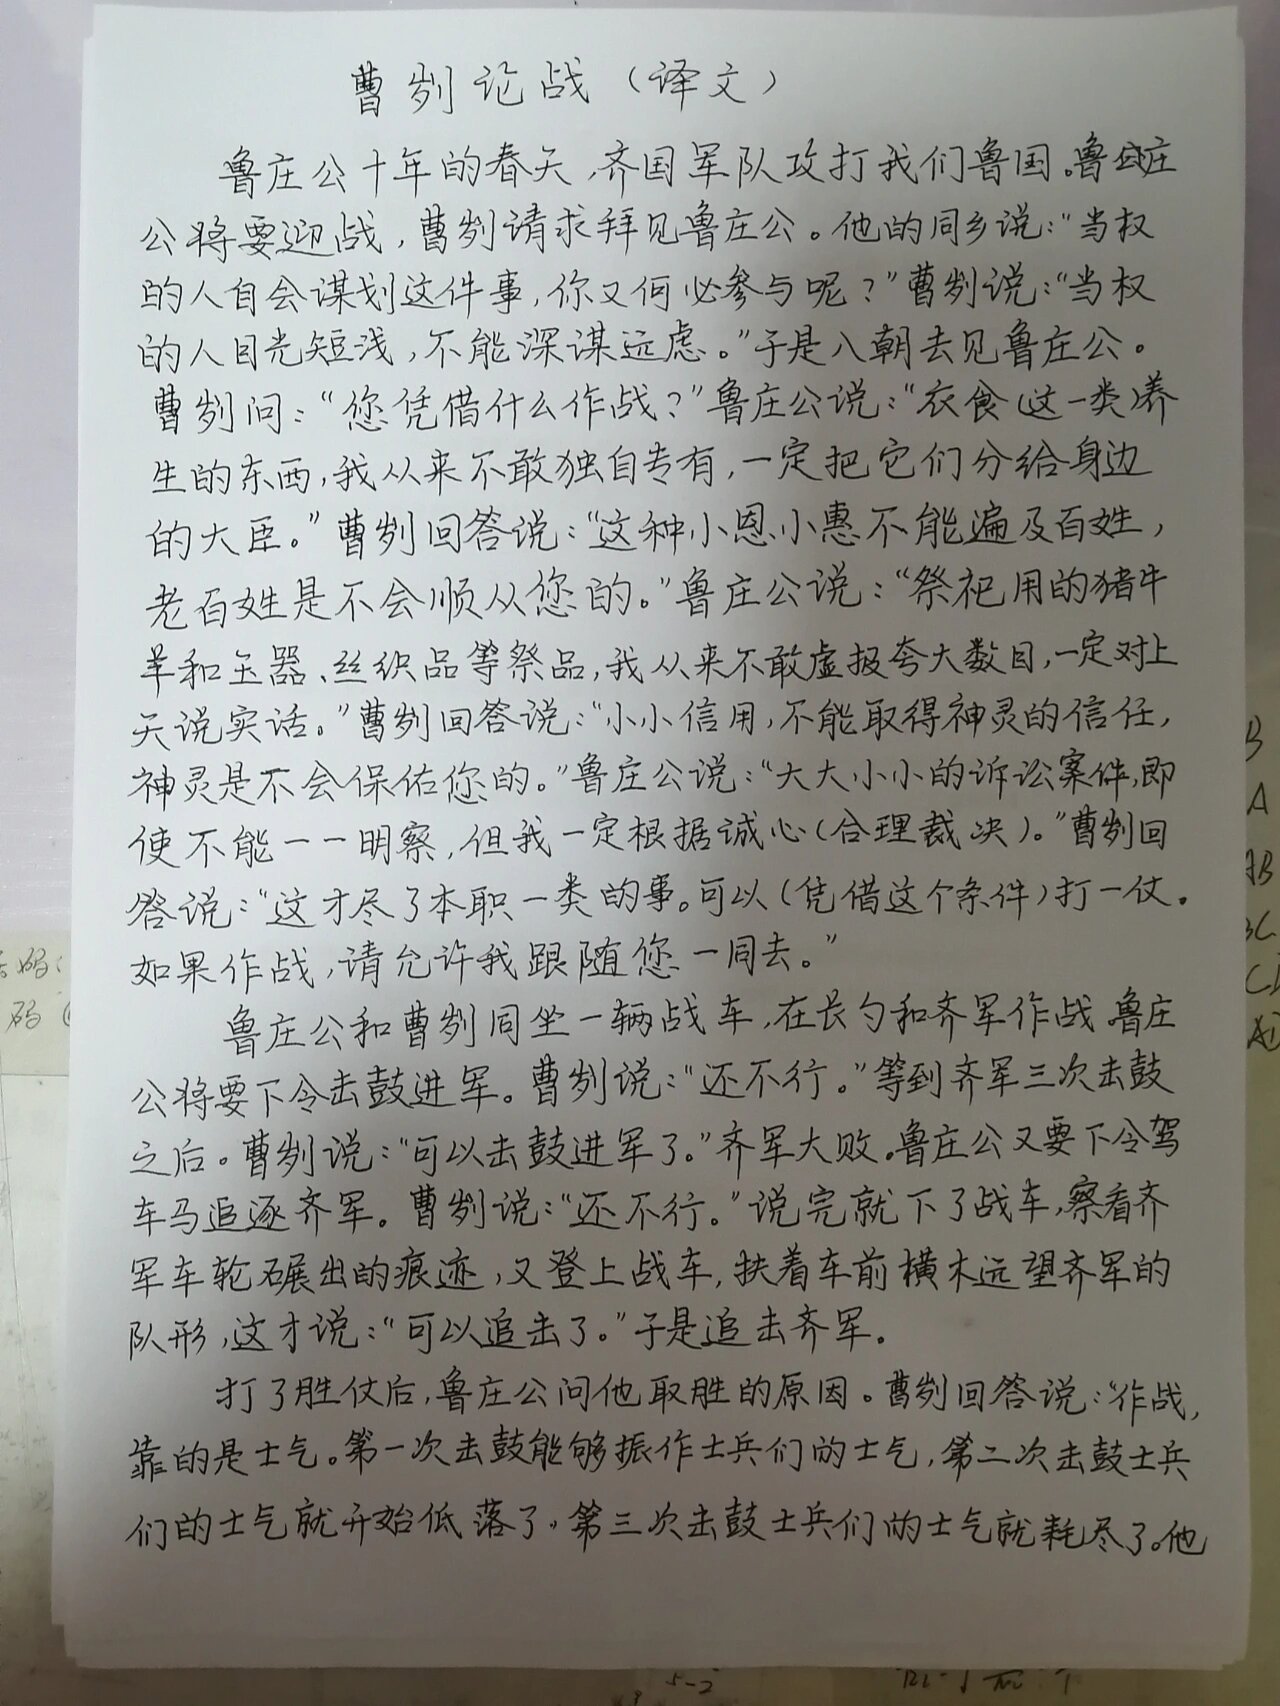 曹刿论战（译文）
鲁庄公十年的春天，齐国军队攻打我们鲁国。鲁庄
公将要迎战，曹刿请求拜见鲁庄公。他的同乡说：“当权
的人自会谋划这件事，你又何必参与呢？”曹刿说：“当权
的人目光短浅，不能深谋远虑。”于是八朝去见鲁庄公。
曹刿问：“您凭借什么作战？”鲁庄公说：“衣食（这一类）养
生的东西，我从来不敢独自专有，一定把它们分给身边
的大臣。”曹刿回答说：“这种小恩小惠不能遍及百姓，
老百姓是不会顺从您的。”鲁庄公说：“祭祀用的猪牛
羊和玉器、丝织品等祭品，我从来不敢虚报夸大数目，一定对上
天说实话。”曹刿回答说：“小小信用，不能取得神灵的信任，
神灵是不会保佑您的。”鲁庄公说：“大大小小的诉讼案件，即
使不能一一明察，但我一定根据诚心（合理裁决）。”曹刿回
答说：“这才尽了本职一类的事。可以（凭借这个条件）打一仗。
如果作战，请允许我跟随您一同去。”
鲁庄公和曹刿同坐一辆战车，在长勺和齐军作战。鲁庄
公将要下令击鼓进军。曹刿说：“还不行。”等到齐军三次击鼓
之后。曹刿说：“可以击鼓进军了。”齐军大败。鲁庄公又要下令驾
车马追逐齐军。曹刿说：“还不行。”说完就下了战车，察看齐
军车轮碾出的痕迹，又登上战车，扶着车前横木远望齐军的
队形，这才说：“可以追击了。”于是追击齐军。
打了胜仗后，鲁庄公问他取胜的原因。曹刿回答说：“作战，
靠的是士气。第一次击鼓能够振作士兵们的士气，第二次击鼓士兵
们的士气就开始低落了，第三次击鼓士兵们的士气就耗尽了。他
B
A
AB
BC
码
5-2